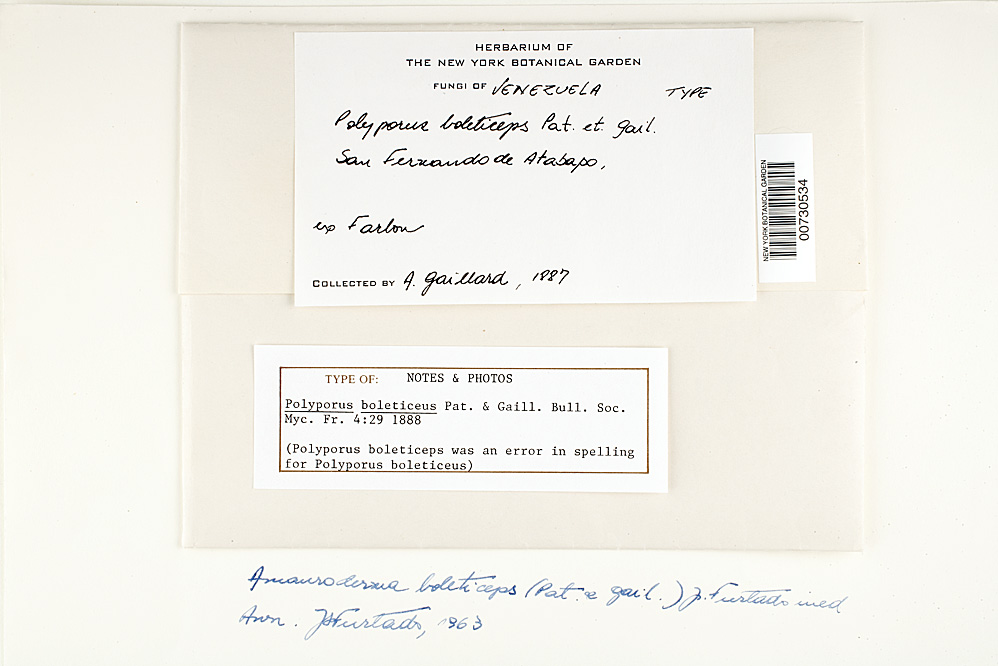 HERBARIUM OF
THE NEW YORK BOTANICAL GARDEN
FUNGI OF VENEZUELA TYPE
Polyporus boleticeps Pat. et. Gail.
San Fernando de Atabapo,
ex Farlow
COLLECTED BY A. Gaillard, 1887
NEW YORK BOTANICAL GARDEN
00730534
TYPE OF: NOTES & PHOTOS
Polyporus boleticeus Pat. & Gaill. Bull. Soc.
Myc. Fr. 4:29 1888
(Polyporus boleticeps was an error in spelling
for Polyporus boleticeus)
Amauroderma boleticeps (Pat. e Gail.) J. Furtado ined
Ann. JSFurtado, 1963